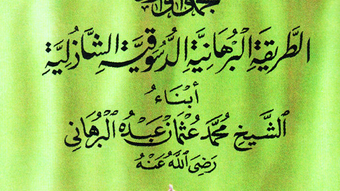 الطَّرِيقَةِ الْبُرْهَانِيَّةِ الدُّسُوقِيَّةِ الشَّاذُلِيَّةِ
أَبْنَاءُ
الشَّيْخِ مُحَمَّدْ عُثْمَانْ عَبْدُهُ الْبُرْهَانِي
رَضِيَ اللَّهُ عَنْهُ